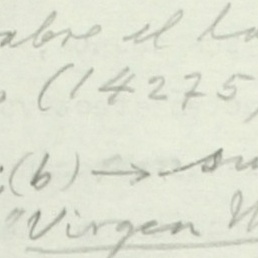 abre el ha
(14275
(b) → su
"Virgen